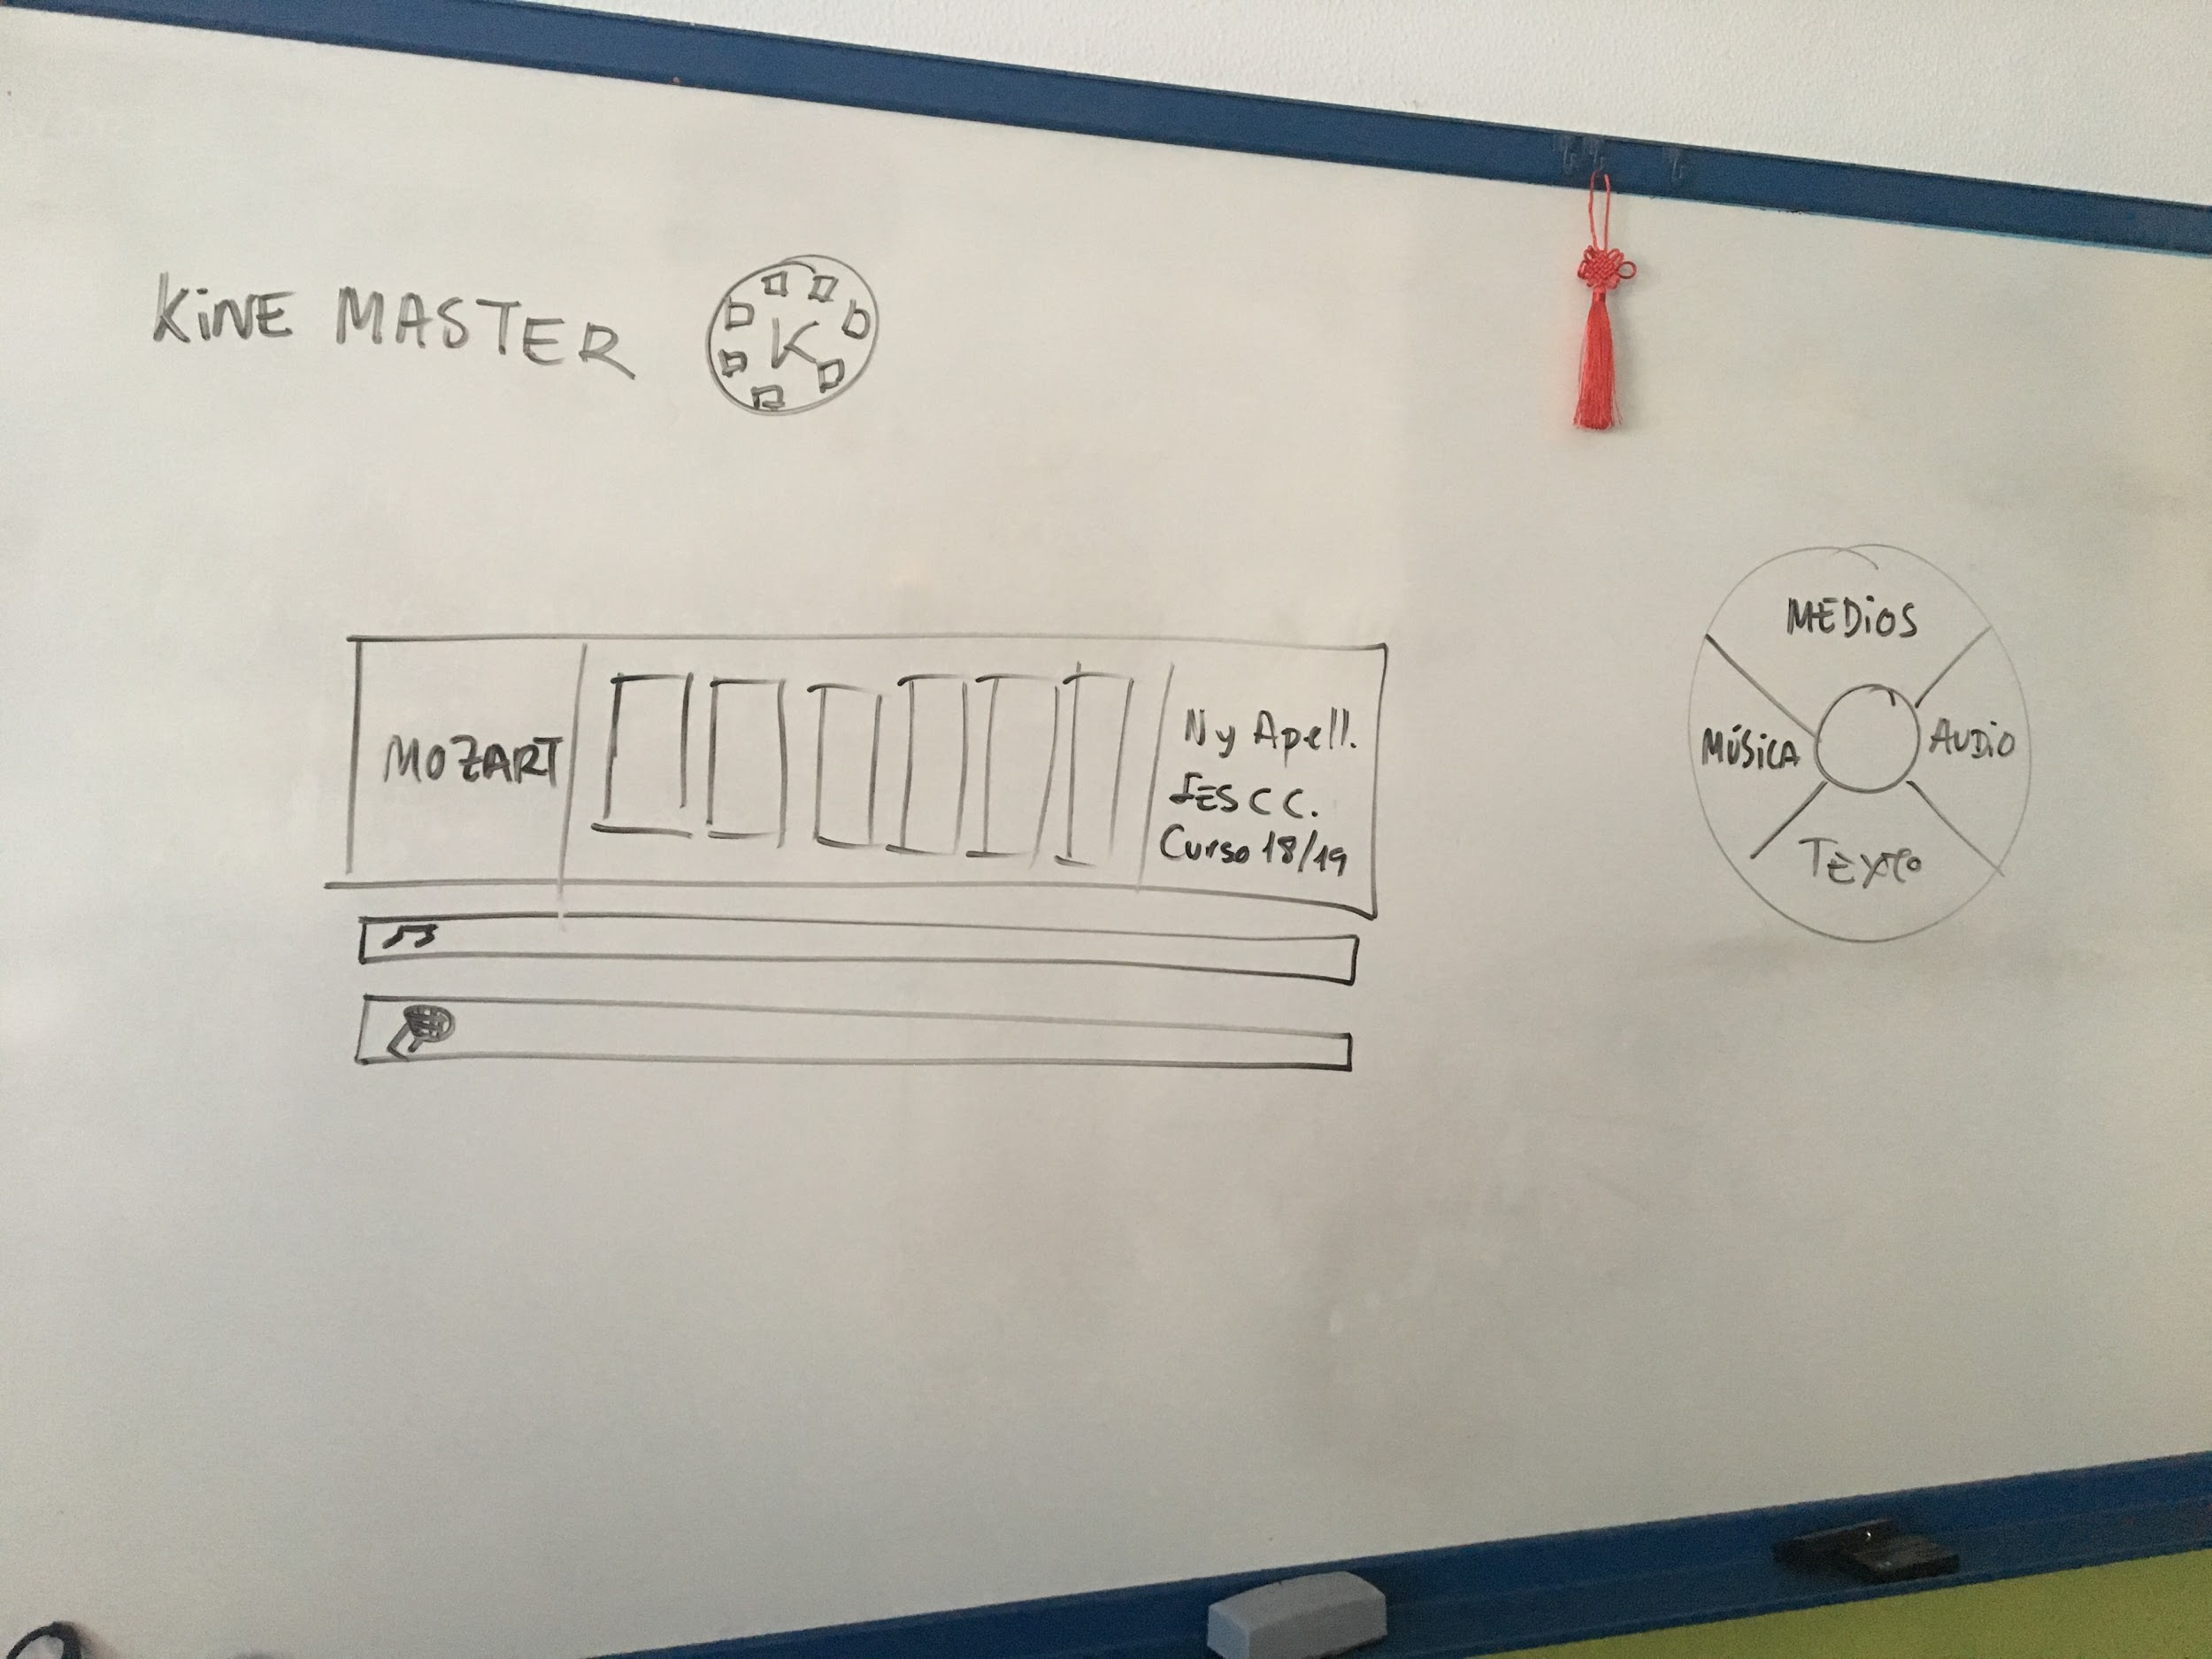 KINE MASTER
K
MOZART
N y Apell.
IES C C.
Curso 18/19
MEDIOS
MÚSICA
AUDIO
TEXTO